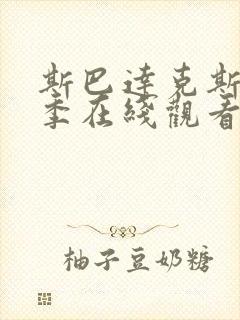 斯巴達克斯
季在綫觀看
柚子豆奶糖